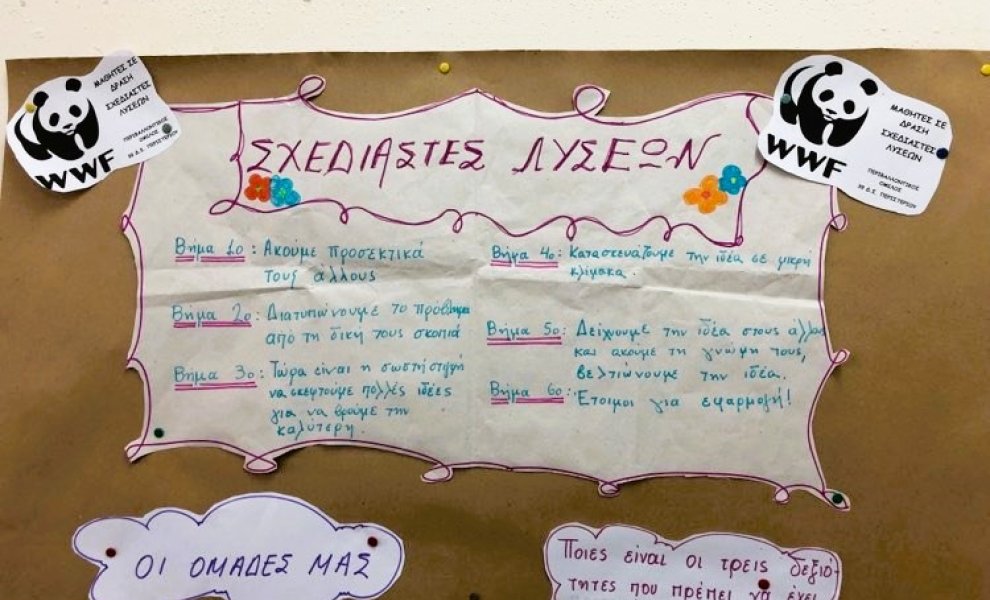 ΜΑΘΗΤΕΣ ΣΕ
ΔΡΑΣΗ
ΣΧΕΔΙΑΣΤΕΣ
ΛΥΣΕΩΝ
ΠΕΡΙΒΑΛΛΟΝΤΙΚΟΣ
ΟΜΙΛΟΣ
39 Δ.Σ. ΠΕΡΙΣΤΕΡΙΟΥ
WWF
ΜΑΘΗΤΕΣ ΣΕ
ΔΡΑΣΗ
ΣΧΕΔΙΑΣΤΕΣ
ΛΥΣΕΩΝ
ΠΕΡΙΒΑΛΛΟΝΤΙΚΟΣ
ΟΜΙΛΟΣ
39 Δ.Σ. ΠΕΡΙΣΤΕΡΙΟΥ
WWF
ΣΧΕΔΙΑΣΤΕΣ ΛΥΣΕΩΝ
Βήμα 1ο: Ακούμε προσεκτικά
τους άλλους
Βήμα 2ο: Διατυπώνουμε το πρόβλημα
από τη δική τους σκοπιά
Βήμα 3ο: Τώρα είναι η σωστή στιγμή
να σκεφτούμε πολλές ιδέες
για να βρούμε την
καλύτερη.
Βήμα 4ο: Κατασκευάζουμε την ιδέα σε μικρή
κλίμακα.
Βήμα 5ο: Δείχνουμε την ιδέα στους άλλους
και ακούμε τη γνώμη τους,
βελτιώνουμε την ιδέα.
Βήμα 6ο: Έτοιμοι για εφαρμογή!
ΟΙ ΟΜΑΔΕΣ ΜΑΣ
Ποιες είναι οι τρεις δεξιό-
τητες που πρέπει να έχει